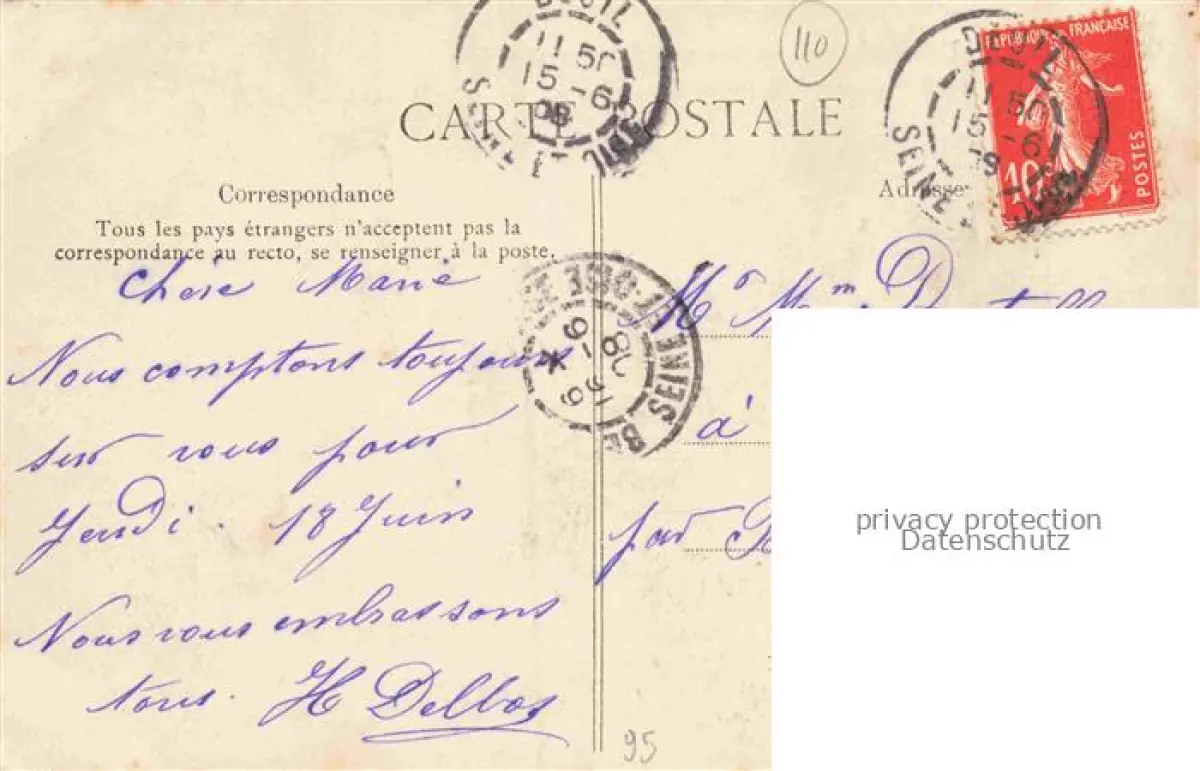 DEUIL
11 50
15 -6
08
110
DEUIL
11 50
15 -6
SEINE
REPUBLIQUE FRANÇAISE
10c
POSTES
CARTE POSTALE
Correspondance
Adresse
Tous les pays étrangers n'acceptent pas la
correspondance au recto, se renseigner à la poste.
Chère Marie
Nous comptons toujours
sur vous pour
Jeudi. 18 Juin
Nous vous embrassons
tous. H Delbos
SEINE
08
Mr Mm
à
par
95
privacy protection
Datenschutz